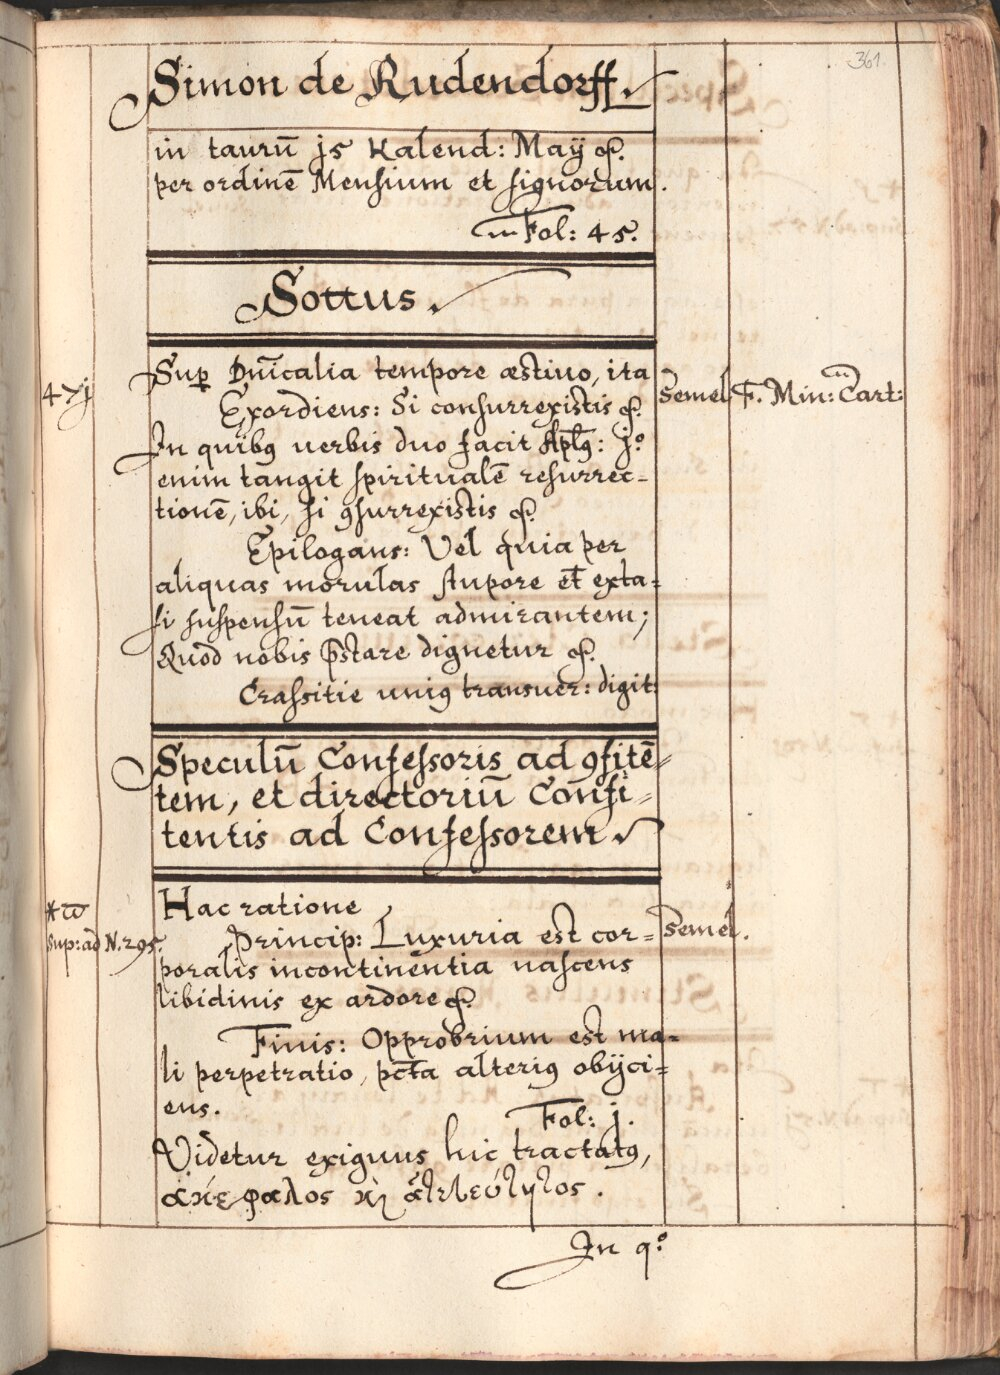 361.
Simon de Rudendorff.
in taurū j5 Kalend: Maÿ &.
per ordinē Mensium et signorum.
Fol: 45.
Sottus.
47j
Sup Dn̄icalia tempore æstiuo, ita
semel F. Min: Cart:
Exordiens: Si consurrexistis &.
In quibꝰ uerbis duo facit Apl̄ꝰ: jº
enim tangit spiritualē resurrec-
tionē, ibi, si ꝯsurrexistis &.
Epilogans: Vel quia per
aliquas morulas stupore et exta-
si suspensū teneat admirantem;
Quod nobis p̄stare dignetur &.
Crassitie uniꝰ transuer: digit:
Speculū Confessoris ad ꝯfitē-
tem, et directoriū Confi-
tentis ad Confessorem
Hac ratione
sup: ad N. 295.
Princip: Luxuria est cor-
semel.
poralis incontinentia nascens
libidinis ex ardore &.
Finis: Opprobrium est ma-
li perpetratio, pctā alteriꝰ obijci-
ens.
Fol: j.
Videtur exiguus hic tractatꝰ,
ἀκέφαλος ϗ̀ ἀτελεύτητος.
In qº